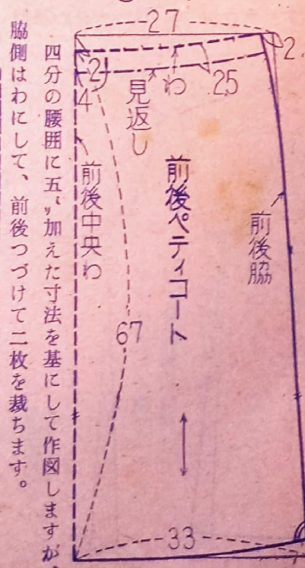 27
2
2
4
わ
25
見返し
前後脇
前後ペティコート
前後中央わ
67
33
四分の腰囲に五㌢加えた寸法を基にして作図しますが、
脇側はわにして、前後つづけて二枚を裁ちます。